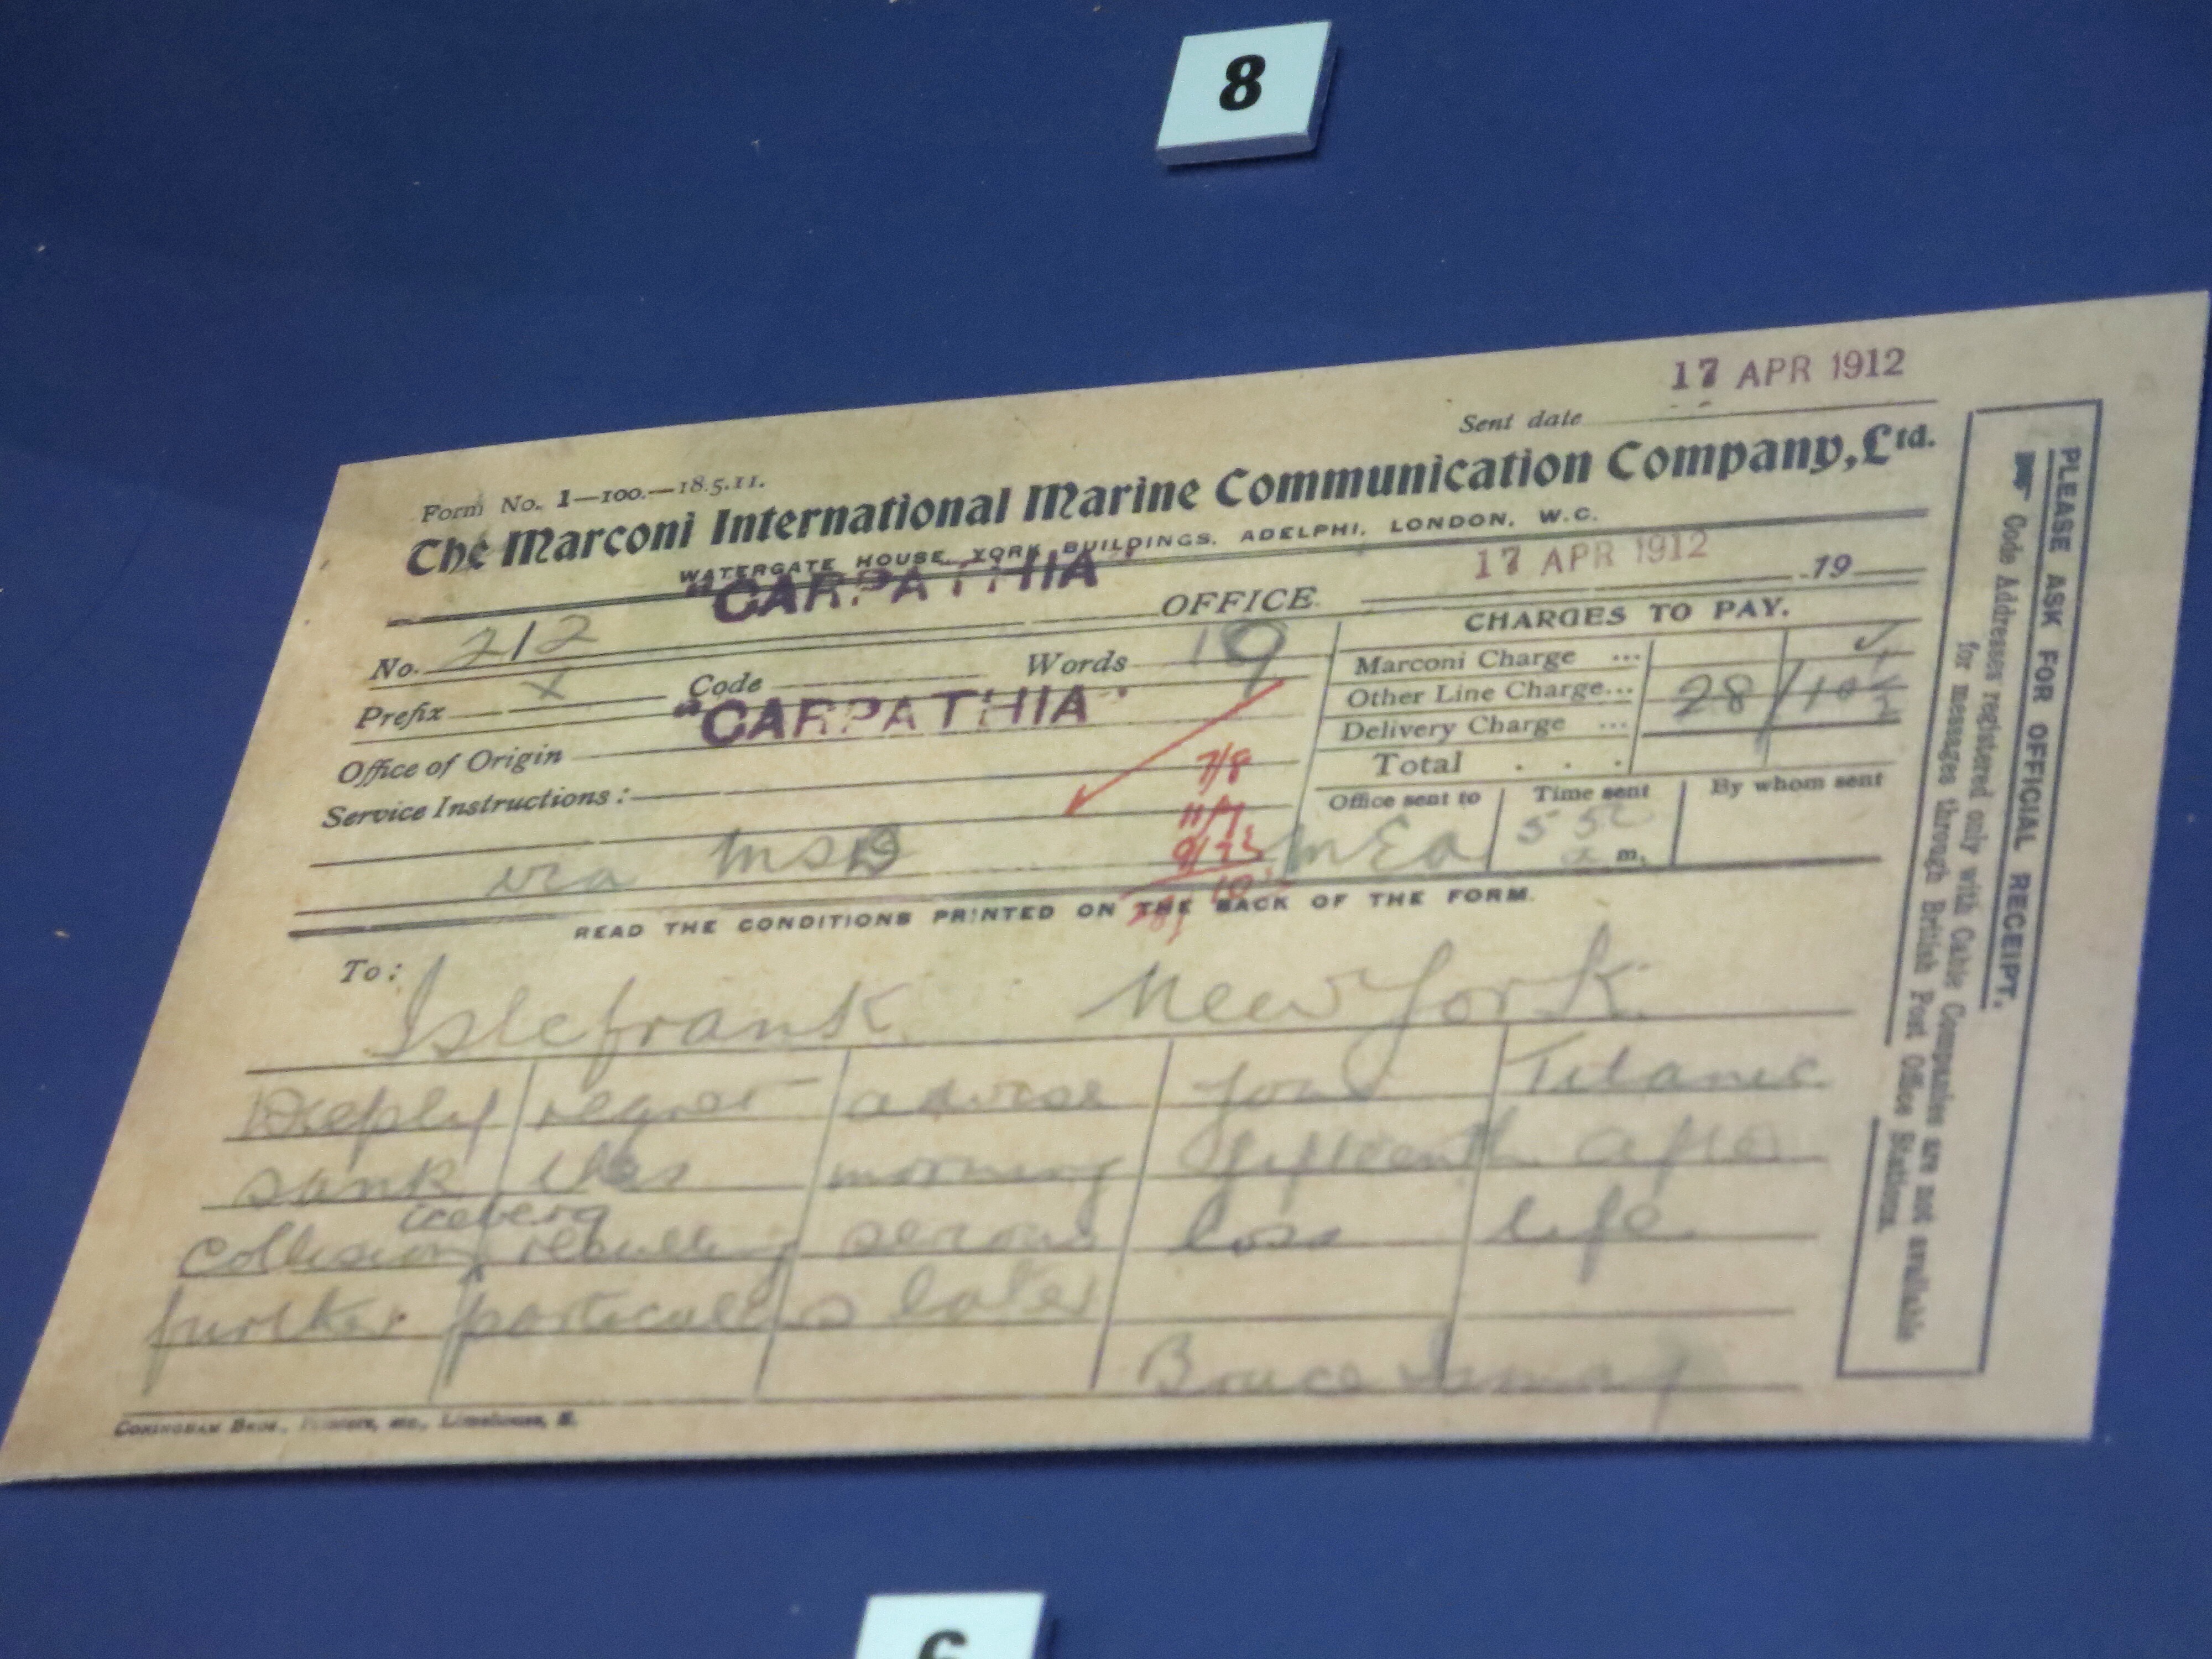 8
17 APR 1912
Sent date
Form No. 1—100.—18.5.11.
The Marconi International Marine Communication Company, Ltd.
WATERGATE HOUSE, YORK BUILDINGS, ADELPHI, LONDON, W.C.
"CARPATHIA" OFFICE 17 APR 1912 19
No. 212 Words 19
Prefix X Code
Office of Origin "CARPATHIA"
Service Instructions:
via MSD
7/8
CHARGES TO PAY.
Marconi Charge ...
Other Line Charge... 28/10
Delivery Charge ...
Total . . .
Office sent to Time sent By whom sent
MEA m.
READ THE CONDITIONS PRINTED ON THE BACK OF THE FORM.
To: Islefrank New York
Deeply regret advise you Titanic
sank this morning fifteenth after
iceberg
collision resulting serious loss life
further particulars later
Bruce Ismay
PLEASE ASK FOR OFFICIAL RECEIPT.
Code Addresses registered only with Cable Companies are not available
for messages through British Post Office Stations.
CONINGHAM BROS., Printers, etc., Limehouse, E.
6